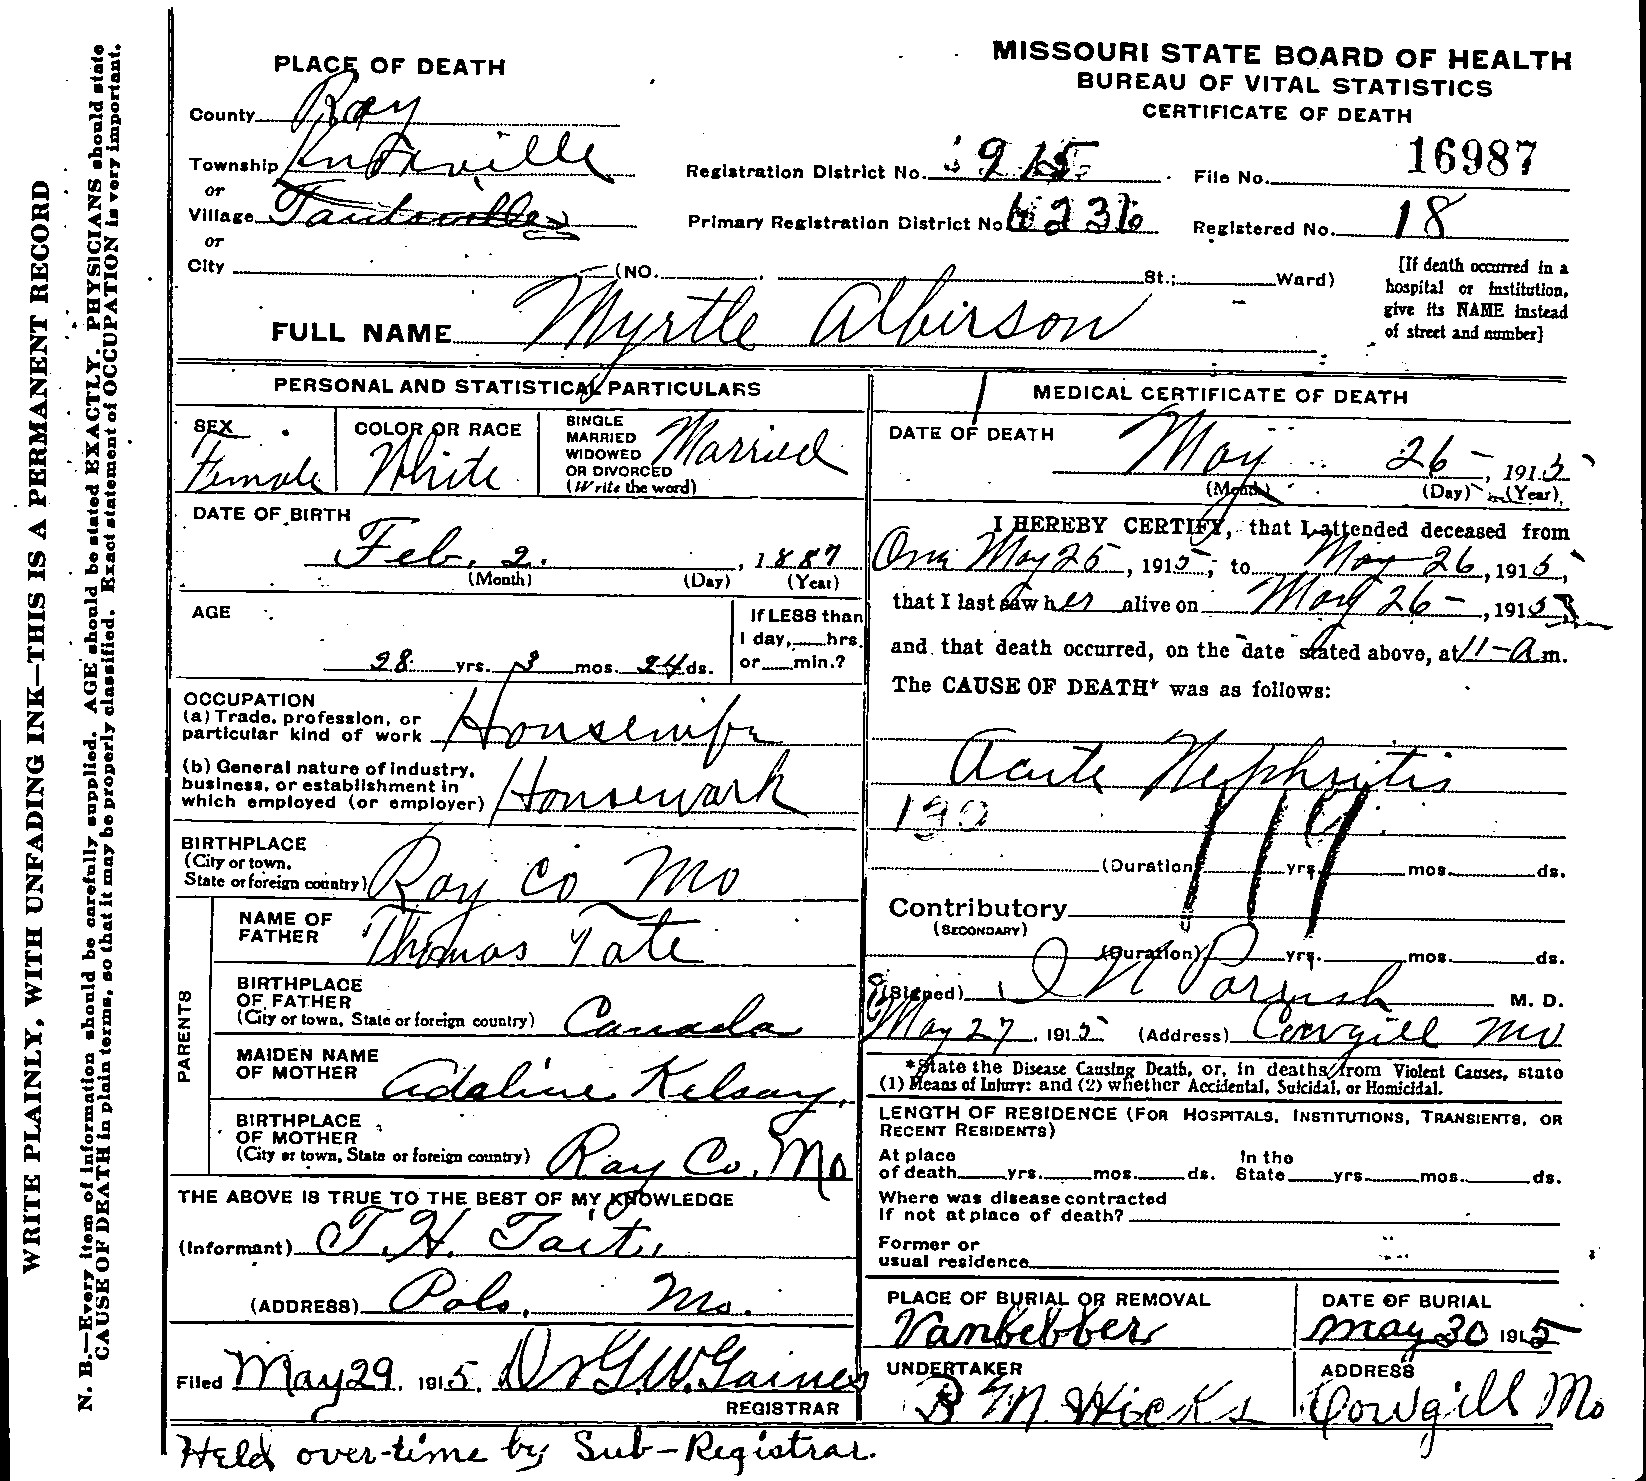 WRITE PLAINLY, WITH UNFADING INK—THIS IS A PERMANENT RECORD
N. B.—Every item of information should be carefully supplied. AGE should be stated EXACTLY. PHYSICIANS should state
CAUSE OF DEATH in plain terms, so that it may be properly classified. Exact statement of OCCUPATION is very important.
MISSOURI STATE BOARD OF HEALTH
BUREAU OF VITAL STATISTICS
CERTIFICATE OF DEATH
PLACE OF DEATH
County Ray
Township Knoxville
or
Village
or
City (NO. St.; Ward)
Registration District No. 915
File No. 16987
Primary Registration District No 6236
Registered No. 18
[If death occurred in a
hospital or institution,
give its NAME instead
of street and number]
FULL NAME Myrtle Albirson
PERSONAL AND STATISTICAL PARTICULARS
SEX
Female
COLOR OR RACE
White
SINGLE
MARRIED
WIDOWED
OR DIVORCED
(Write the word)
Married
DATE OF BIRTH
Feb. 2. , 1887
(Month) (Day) (Year)
AGE
28 yrs. 3 mos. 24 ds.
If LESS than
1 day, hrs.
or min.?
OCCUPATION
(a) Trade, profession, or
particular kind of work Housewife
(b) General nature of industry,
business, or establishment in
which employed (or employer) Housewark
BIRTHPLACE
(City or town,
State or foreign country) Ray Co Mo
PARENTS
NAME OF
FATHER Thomas Tate
BIRTHPLACE
OF FATHER
(City or town, State or foreign country) Canada
MAIDEN NAME
OF MOTHER Adaline Kelsay,
BIRTHPLACE
OF MOTHER
(City or town, State or foreign country) Ray Co. Mo
THE ABOVE IS TRUE TO THE BEST OF MY KNOWLEDGE
(Informant) T. H. Tait,
(ADDRESS) Polo, Mo.
Filed May 29, 1915. Dr G. W. Gaines
REGISTRAR
MEDICAL CERTIFICATE OF DEATH
DATE OF DEATH
May 26 – , 1915
(Month) (Day) (Year)
I HEREBY CERTIFY, that I attended deceased from
On May 25, 1915, to May 26, 1915,
that I last saw her alive on May 26 –, 1915
and that death occurred, on the date stated above, at 11–a m.
The CAUSE OF DEATH* was as follows:
Acute Nephritis
130
119
(Duration) yrs. mos. ds.
Contributory
(SECONDARY)
(Duration) yrs. mos. ds.
(Signed) I N Parrish M. D.
May 27, 1915 (Address) Cowgill Mo
*State the Disease Causing Death, or, in deaths from Violent Causes, state
(1) Means of Injury; and (2) whether Accidental, Suicidal, or Homicidal.
LENGTH OF RESIDENCE (FOR HOSPITALS, INSTITUTIONS, TRANSIENTS, OR
RECENT RESIDENTS)
At place
of death yrs. mos. ds.
In the
State yrs. mos. ds.
Where was disease contracted
if not at place of death?
Former or
usual residence
PLACE OF BURIAL OR REMOVAL
Vanbebber
DATE OF BURIAL
May 30 1915
UNDERTAKER
B M Hicks
ADDRESS
Cowgill Mo
Held over-time by Sub-Registrar.